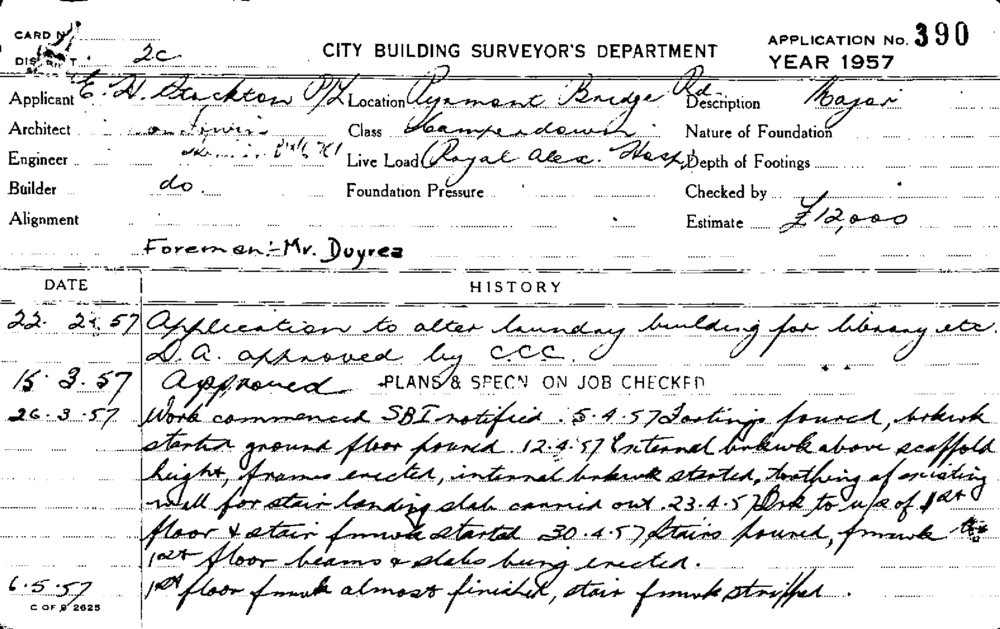 CARD No.
DISTRICT 2c
CITY BUILDING SURVEYOR'S DEPARTMENT
APPLICATION No. 390
YEAR 1957
Applicant E. H. Stockton P/L Location Pyrmont Bridge Rd Description Major
Architect Class Camperdown Nature of Foundation
Engineer Live Load (Royal Alex. Hosp.) Depth of Footings
Builder do. Foundation Pressure Checked by
Alignment Estimate £12,000
Foreman:- Mr. Duyrez
DATE HISTORY
22. 2. 57 Application to alter laundry building for library etc.
D.A. approved by C.C.C.
15. 3. 57 Approved PLANS & SPECN ON JOB CHECKED
26. 3. 57 Work commenced SBI notified. 5.4.57 Footings poured, brkwk
started ground floor poured. 12.4.57 External brkwk above scaffold
height, frames erected, internal brkwk started, toothing of existing
wall for stair landing slab carried out. 23.4.57 Brk to u/s of 1st
floor & stair fmwk started 30.4.57 Stairs poured, fmwk to
1st floor beams & slabs being erected.
6.5.57 1st floor fmwk almost finished, stair fmwk stripped.
C OF S 2625